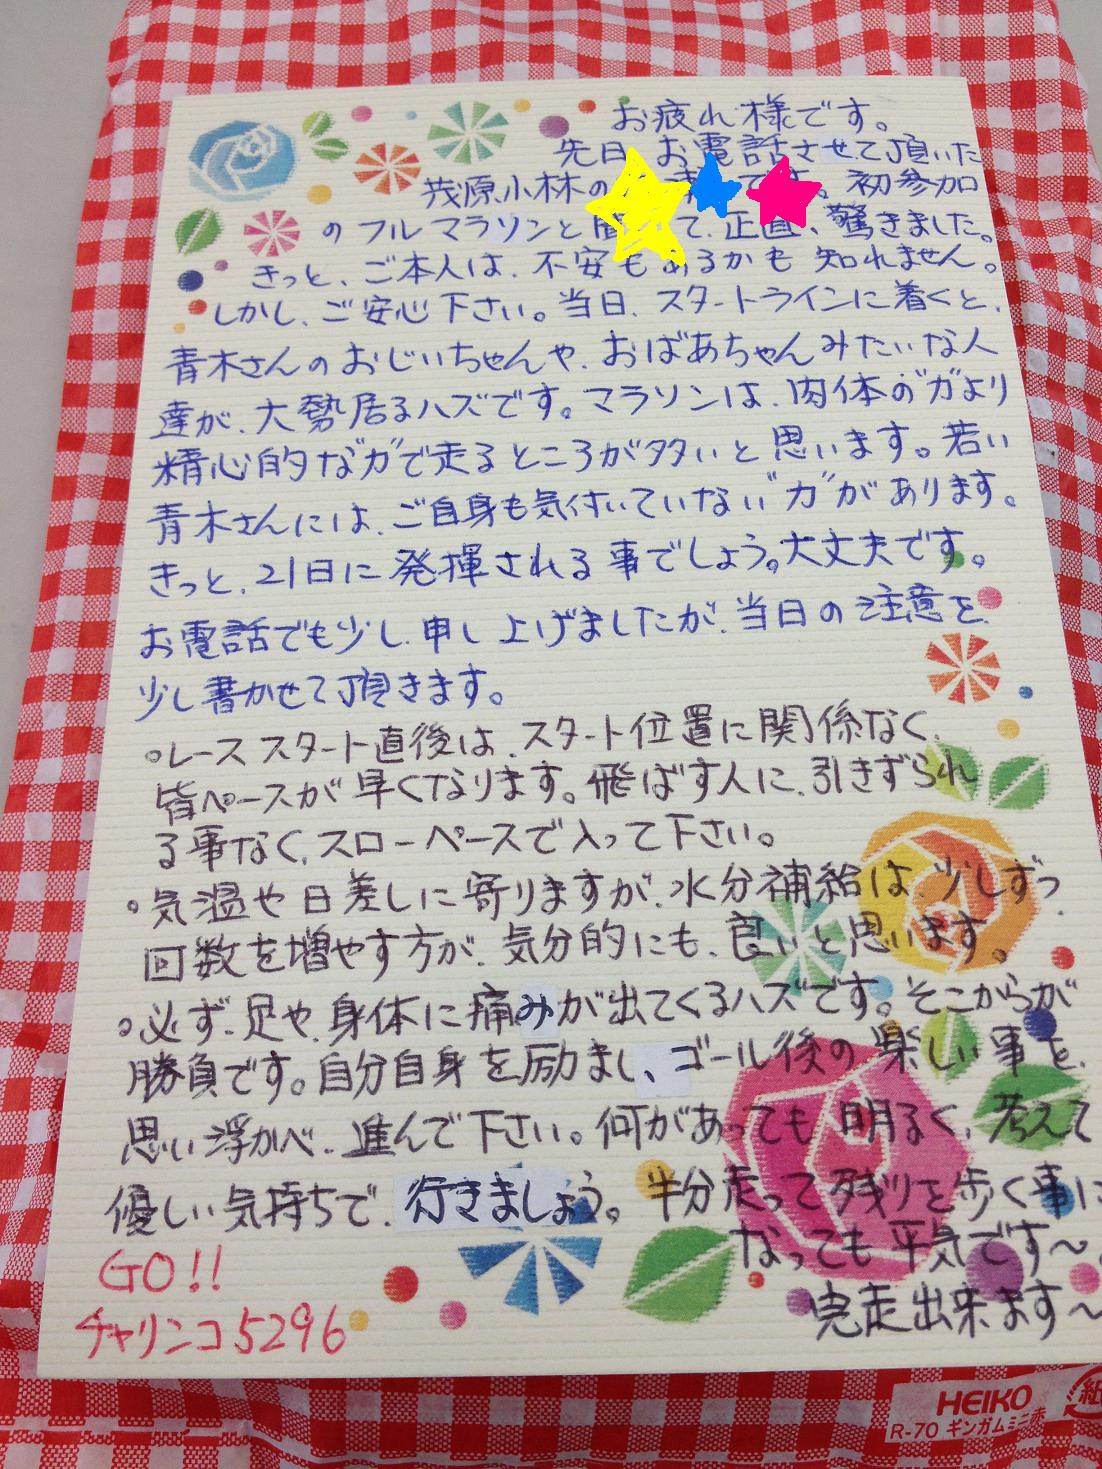 お疲れ様です。
先日、お電話させて頂いた
茂原小林の です。初参加
のフルマラソンと て、正直、驚きました。
きっと、ご本人は、不安もあるかも知れません。
しかし、ご安心下さい。当日、スタートラインに着くと、
青木さんのおじいちゃんや、おばあちゃんみたいな人
達が、大勢居るハズです。マラソンは、肉体の"力"より
精心的な"力"で走るところが多いと思います。若い
青木さんには、ご自身も気付いていない"力"があります。
きっと、21日に発揮される事でしょう。大丈夫です。
お電話でも少し申し上げましたが、当日の注意を、
少し書かせて頂きます。
○レーススタート直後は、スタート位置に関係なく、
皆ペースが早くなります。飛ばす人に、引きずられ
る事なく、スローペースで入って下さい。
○気温や日差しに寄りますが、水分補給は、少しずつ
回数を増やす方が、気分的にも、良いと思います。
○必ず、足や、身体に痛みが出てくるハズです。そこからが
勝負です。自分自身を励まし、ゴール後の楽しい事を、
思い浮かべ、進んで下さい。何があっても明るく、考えて
優しい気持ちで、行きましょう。半分走って残りを歩く事に
なっても平気です～。
完走出来ます～
GO!!
チャリンコ5296
HEIKO
R-70 ギンガムミニ赤
紙